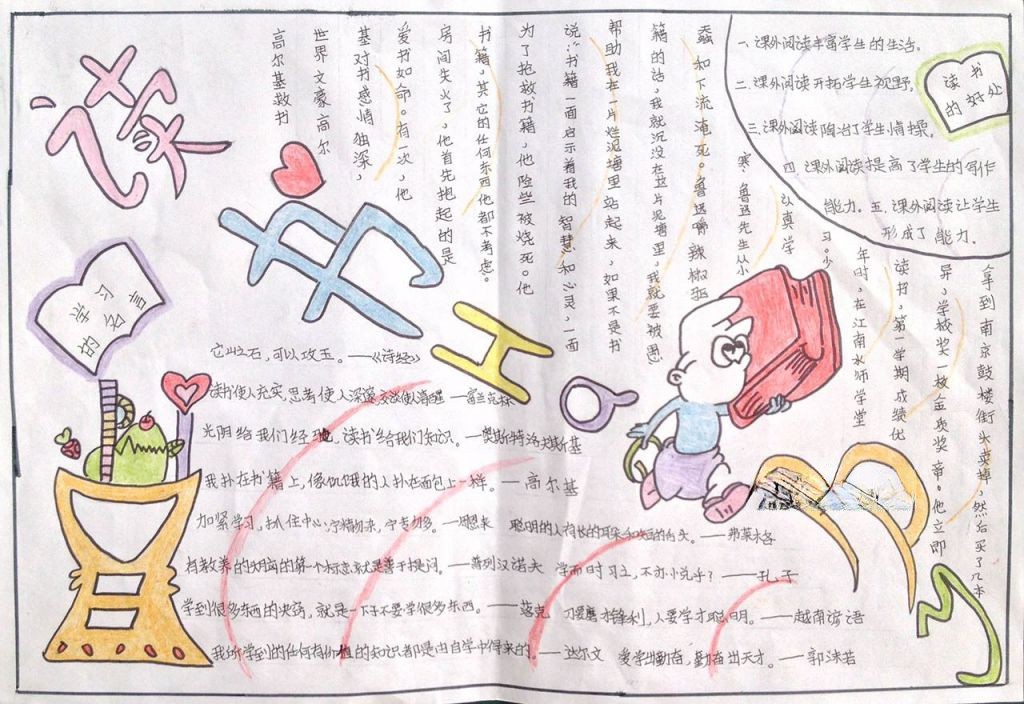 读书
高尔基救书
世界文豪高尔
基对书感情独深，
爱书如命。有一次，他
房间失火了，他首先抱起的是
书籍，其它的任何东西他都不考虑。
为了抢救书籍，他险些被烧死。他
说：书籍一面启示着我的智慧和心灵，一面
帮助我在一片烂泥塘里站起来，如果不是书
籍的话，我就沉没在这片泥塘里，我就要被愚
蠢和下流淹死。鲁迅嚼辣椒驱
寒：鲁迅先生从小
认真学
习。少
年时，在江南水师学堂
读书，第一学期成绩优
异，学校奖一枚金质奖章。他立即
拿到南京鼓楼街头卖掉，然后买了几本
读书
的好处
一、课外阅读丰富学生的生活。
二、课外阅读开拓学生视野。
三、课外阅读陶冶了学生情操。
四、课外阅读提高了学生的写作
能力。五、课外阅读让学生
形成了能力。
学习
名言
它山之石，可以攻玉。——《诗经》
读书使人充实，思考使人深邃，交谈使人清醒——富兰克林
光阴给我们经验，读书给我们知识。——奥斯特洛夫斯基
我扑在书籍上，像饥饿的人扑在面包上一样。——高尔基
加紧学习，抓住中心，宁精勿杂，宁专勿多。——周恩来 聪明的人有长的耳朵和短的舌头。——弗莱格
有教养的头脑的第一个标志就是善于提问。——普列汉诺夫 学而时习之，不亦小说乎？——孔子
学到很多东西的诀窍，就是一下子不要学很多东西。——洛克 刀要磨才锋利，人要学才聪明。——越南谚语
我所学到的任何有价值的知识都是由自学中得来的。——达尔文 爱学出勤奋，勤奋出天才。——郭沫若